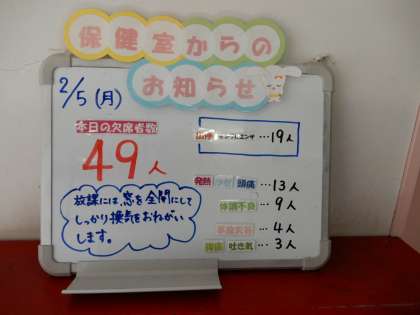 保健室からの
お知らせ
2/5(月)
本日の欠席者数
49人
放課には、窓を全開にして
しっかり換気をおねがい
します。
インフルエンザ …19人
発熱 頭痛 …13人
体調不良 …9人
家庭事情 …4人
腹痛 吐き気 …3人